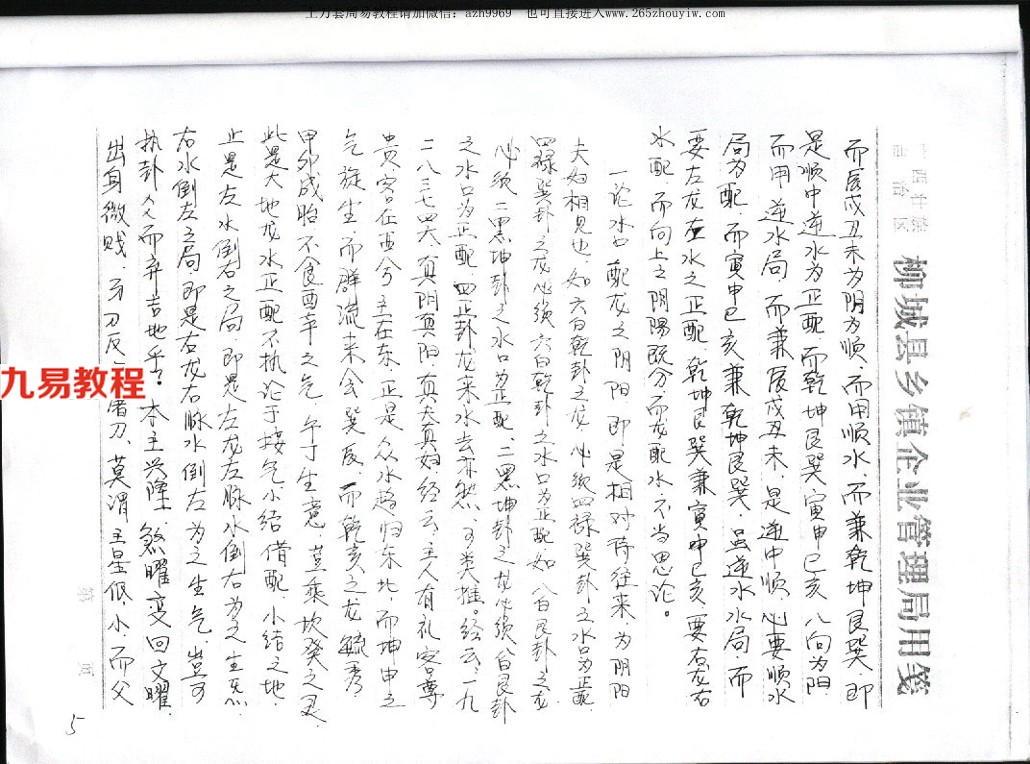 上万套周易教程请加微信：azh9969 也可直接进入www.265zhouyiw.com
柳城县乡镇企业管理局用笺
而辰戌丑未为阴为顺，而用顺水，而兼乾坤艮巽，即
是顺中逆水为正配，而乾坤艮巽寅申巳亥八向为阳
而用逆水局，而兼辰戌丑未，是逆中顺，心要顺水
局为配，而寅申巳亥兼乾坤艮巽，虽逆水水局，而
要左龙左水之正配，乾坤艮巽兼寅申巳亥，要右龙右
水配，而向上之阴阳既分，而龙配水不当思论。
一论水口配龙之阴阳，即是相对待往来为阴阳
夫妇相见也，如六白乾卦之龙，必须四禄巽卦之水口为正配，
四禄巽卦之龙必须六白乾卦之水口为正配，如八白艮卦之龙
必须二黑坤卦之水口为正配，二黑坤卦之龙必须八白艮卦
之水口为正配，四正卦龙来水去亦然，可类推。经云，一九
二八三七四六，真阴真阳，真夫真妇经云，主人有礼客尊
贵，客在西兮主在东，正是众水趋归东北，而坤申之
气旋生，而群流来会巽辰，而乾亥之龙毓秀，
甲卯成胎不食酉辛之气，午丁生意，岂乘坎癸之灵，
此是大地龙水正配不执论于接气小结借配，小结之地，
正是左水倒右之局，即是左龙左脉水倒右为之生气，
右水倒左之局即是右龙右脉水倒左为之生气，岂可
执卦人人而弃吉地乎？本主兴隆，煞曜变回文曜，
出身微贱，牙刀反屠刀，莫谓主星低小，而父
第 页
5
九易教程